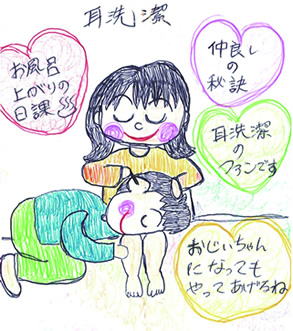 耳洗潔
お風呂
上がりの
日課
仲良しの
秘訣
耳洗潔
の
ファンです
おじいちゃん
になっても
やってあげるね